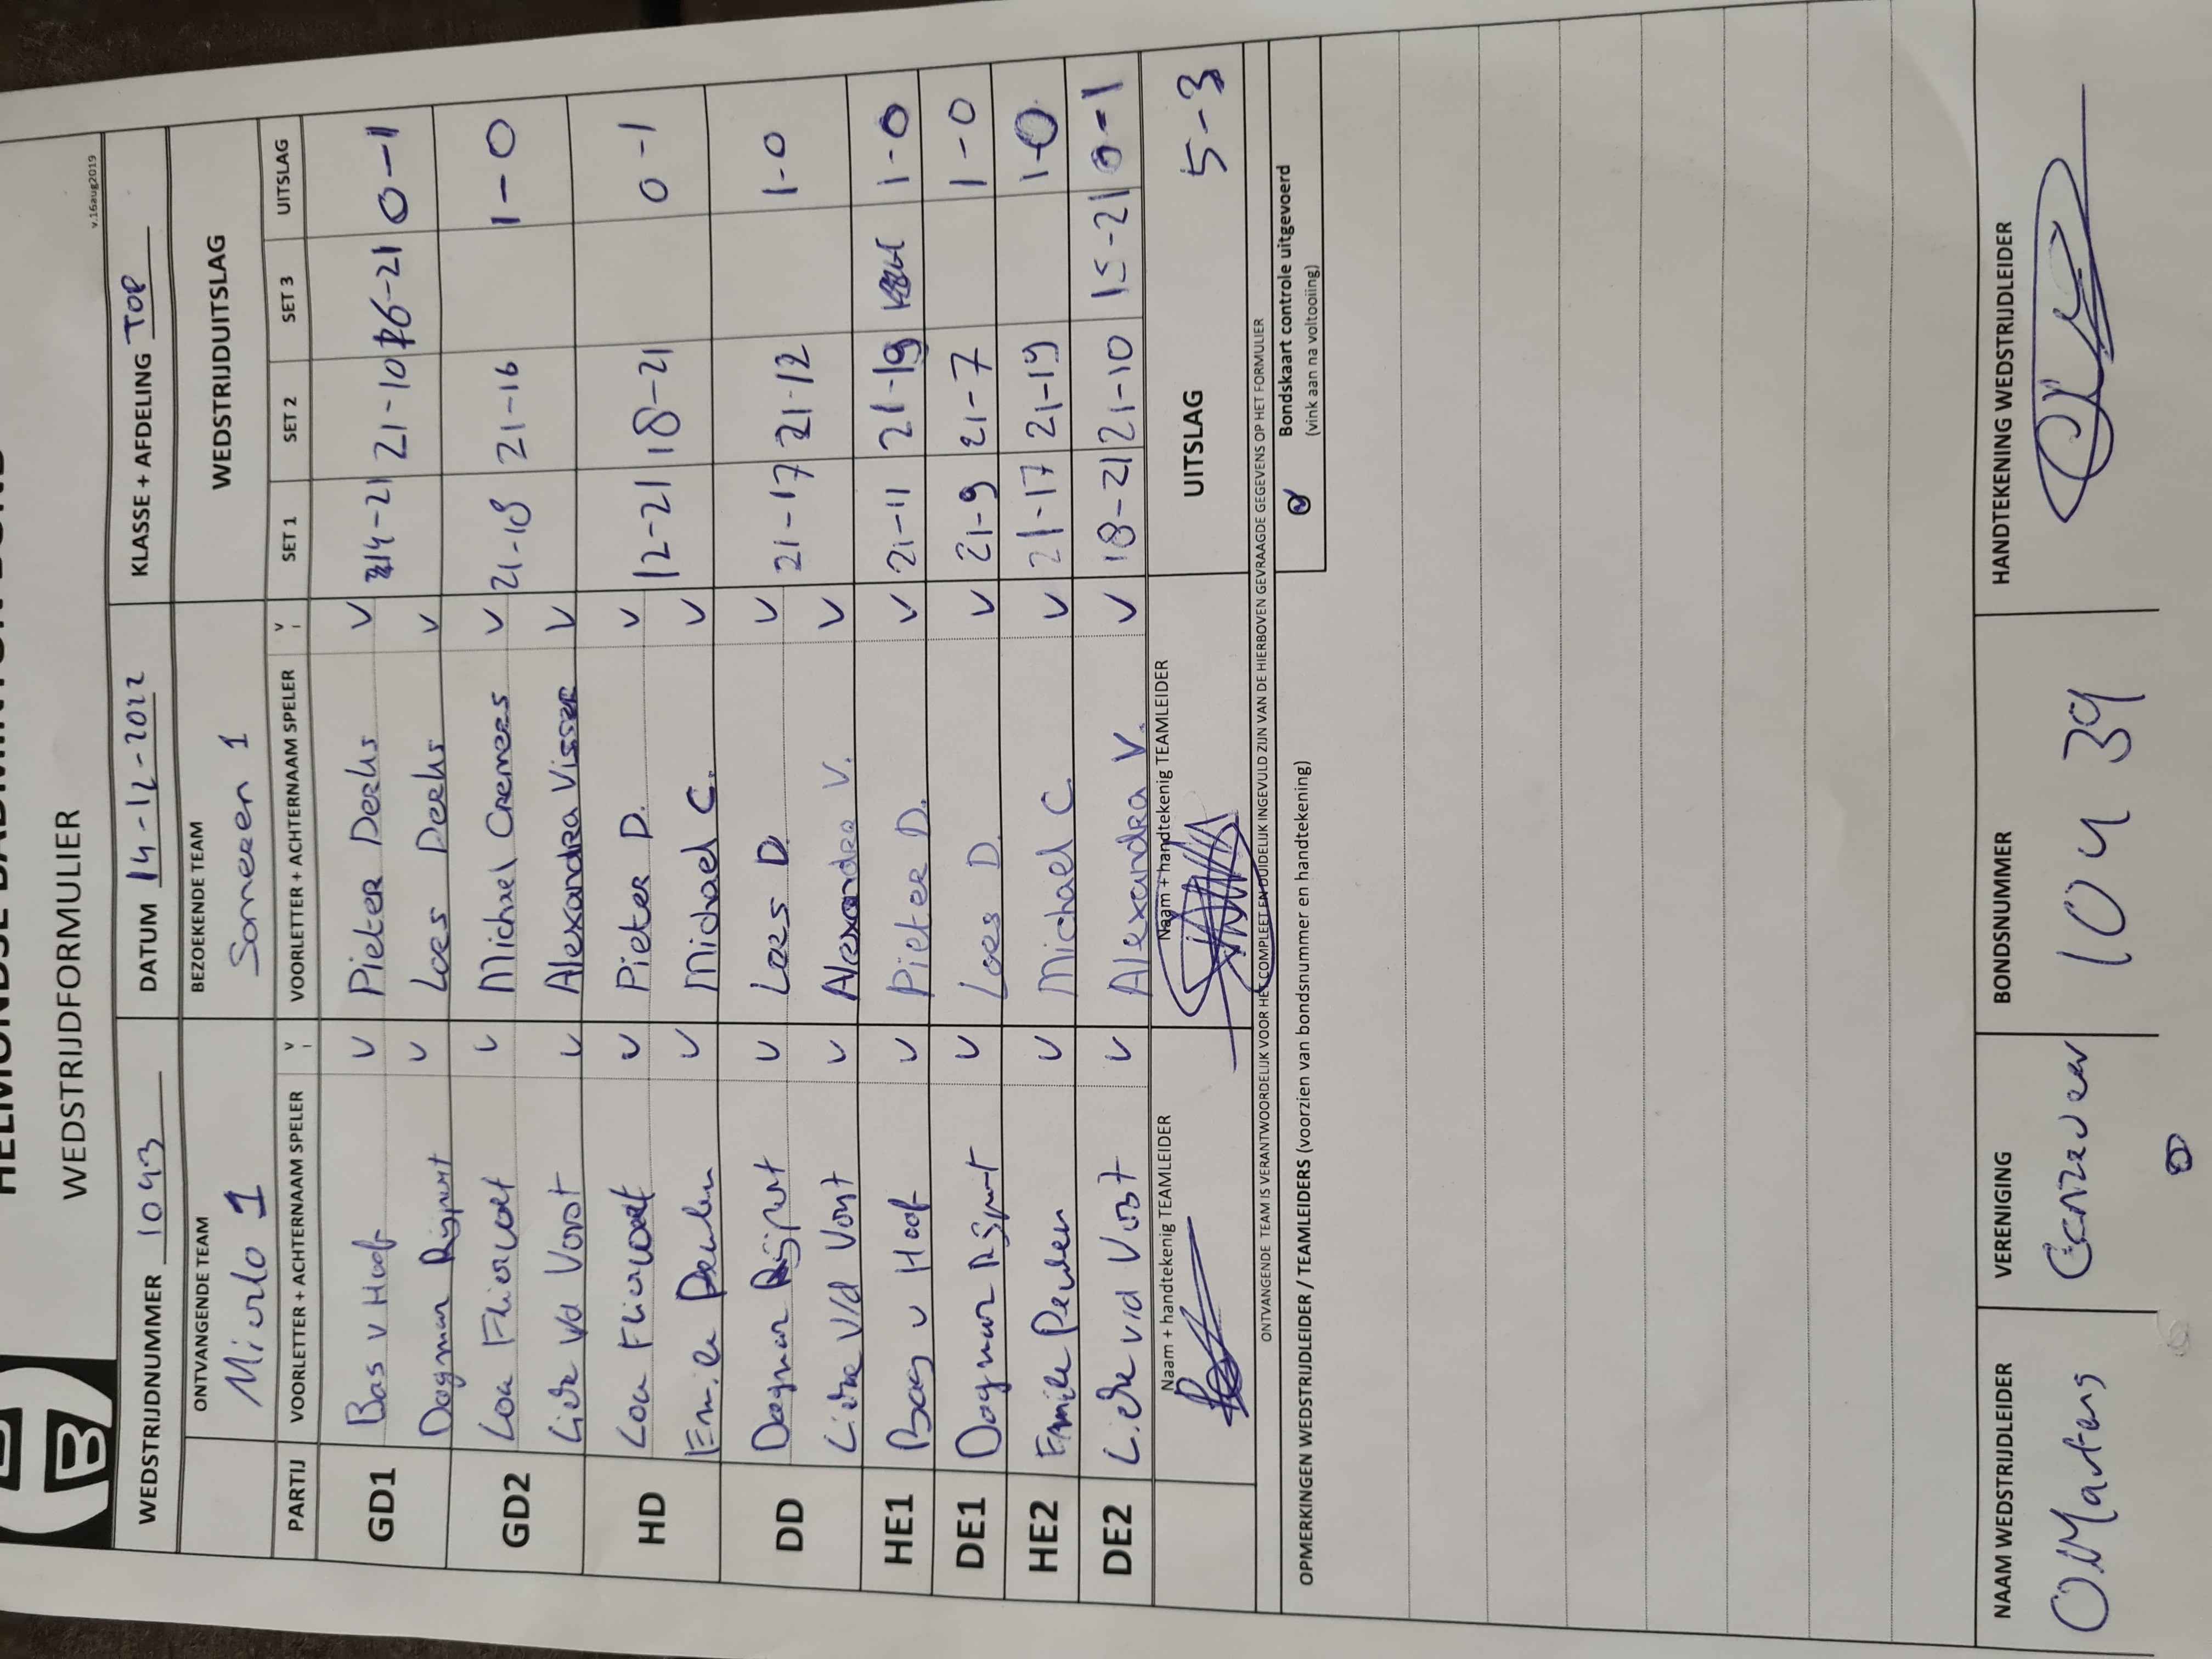 WEDSTRIJDFORMULIER
v.16aug2019
WEDSTRIJDNUMMER 1043 DATUM 14-12-2022 KLASSE + AFDELING TOP
ONTVANGENDE TEAM BEZOEKENDE TEAM WEDSTRIJDUITSLAG
Mierlo 1 Someren 1
PARTIJ VOORLETTER + ACHTERNAAM SPELER V VOORLETTER + ACHTERNAAM SPELER V SET 1 SET 2 SET 3 UITSLAG
GD1 Bas v Hoof V Pieter Derks V 14-21 21-10 16-21 0-1
Dagmar Rijpert V Loes Derks V
GD2 Loa V Michael Cremers V 21-18 21-16 1-0
Lieke vd Vorst V Alexandra Visser V
HD Loa V Pieter D. V 12-21 18-21 0-1
Emile Peulen V Michael C. V
DD Dagmar Rijpert V Loes D. V 21-17 21-12 1-0
Lieke v/d Vorst V Alexandra V. V
HE1 Bas v Hoof V Pieter D. V 21-11 21-19 1-0
DE1 Dagmar Rijpert V Loes D. V 21-9 21-7 1-0
HE2 Emile Peulen V Michael C. V 21-17 21-19 1-0
DE2 Lieke v/d Vorst V Alexandra V. V 18-21 21-10 15-21 0-1
Naam + handtekenig TEAMLEIDER Naam + handtekenig TEAMLEIDER UITSLAG 5-3
ONTVANGENDE TEAM IS VERANTWOORDELIJK VOOR HET COMPLEET EN DUIDELIJK INGEVULD ZIJN VAN DE HIERBOVEN GEVRAAGDE GEGEVENS OP HET FORMULIER
OPMERKINGEN WEDSTRIJDLEIDER / TEAMLEIDERS (voorzien van bondsnummer en handtekening) Bondskaart controle uitgevoerd
(vink aan na voltooiing)
NAAM WEDSTRIJDLEIDER VERENIGING BONDSNUMMER HANDTEKENING WEDSTRIJDLEIDER
O Martens 10439